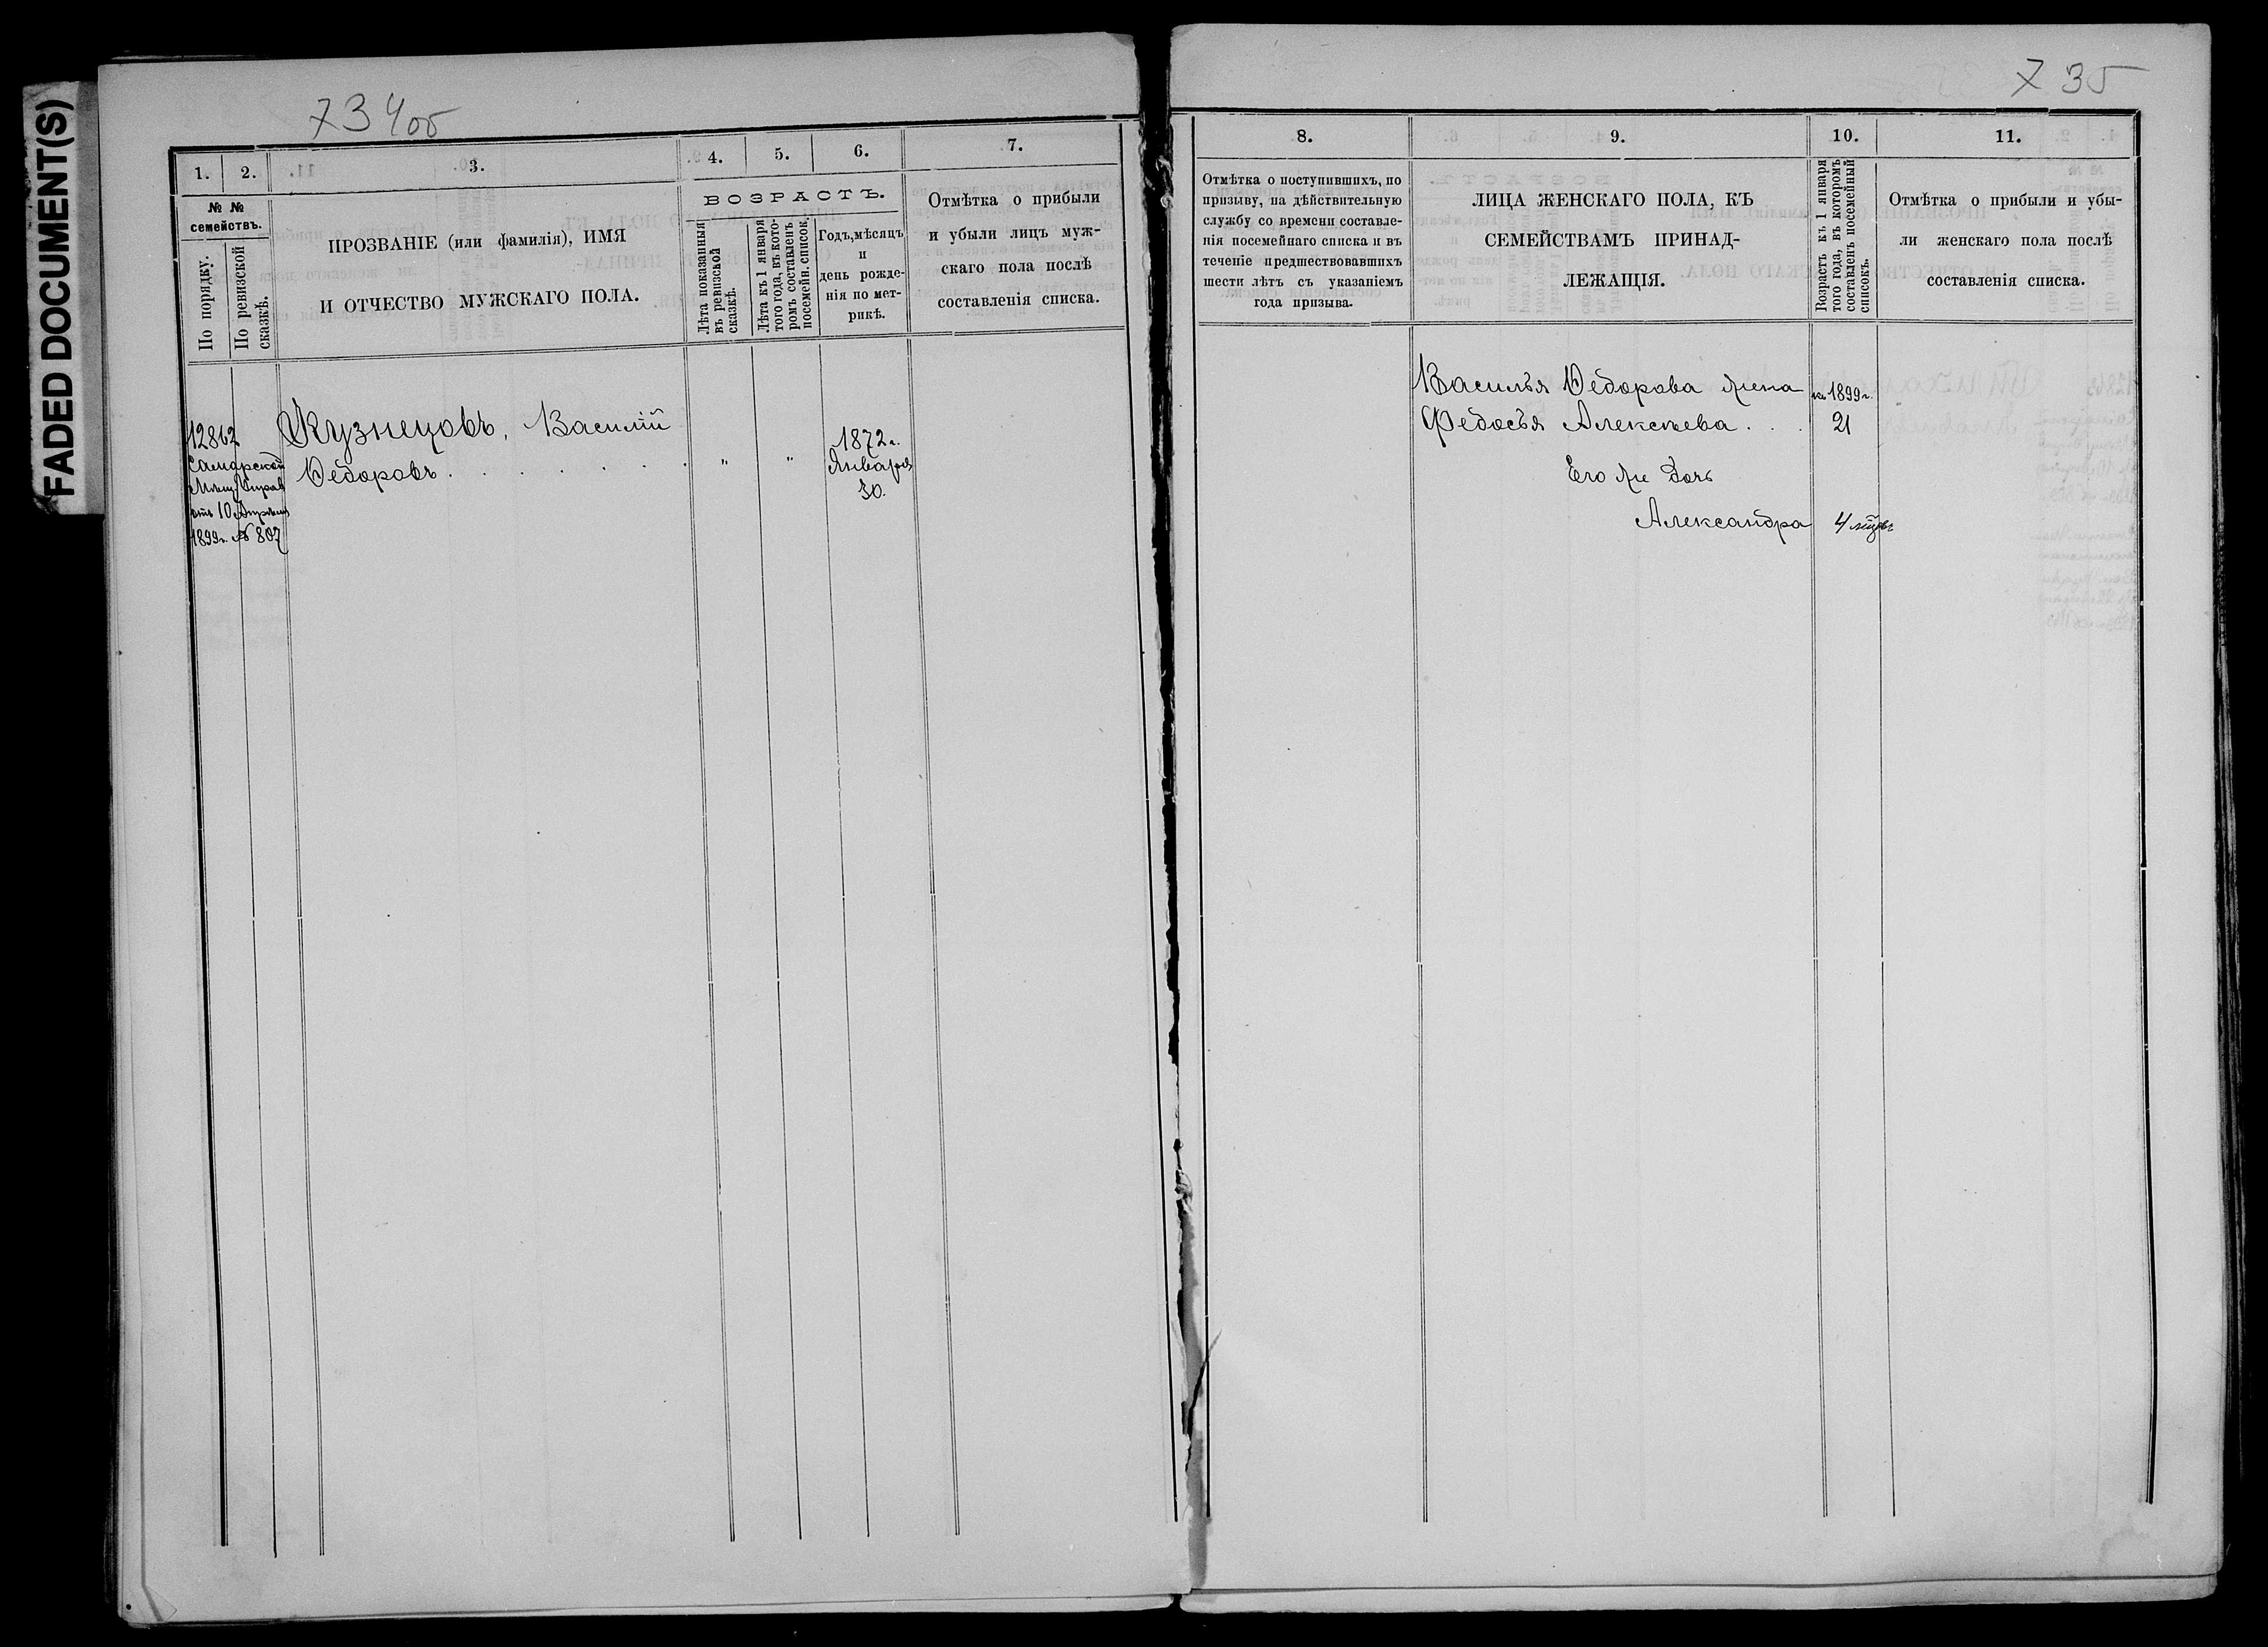 FADED DOCUMENT(S)
734 об
1. 2. 3. 4. 5. 6. 7.
№ №
семействъ.
По порядку.
По ревизской
сказкѣ.
ПРОЗВАНІЕ (или фамилія), ИМЯ
И ОТЧЕСТВО МУЖСКАГО ПОЛА.
ВОЗРАСТЪ.
Лѣта показанныя
въ ревизской
сказкѣ.
Лѣта къ 1 января
того года, въ кото-
ромъ составленъ
посемейн. список.
Годъ, мѣсяцъ
и
день рожде-
нія по мет-
рикѣ.
Отмѣтка о прибыли
и убыли лицъ муж-
скаго пола послѣ
составленія списка.
12862
Самарской
Мѣщ. Управ
отъ 10 Апрѣля
1899 г. № 807
Кузнецовъ, Василій
Ѳедоровъ . . . . . .
" "
1872 г.
Января
30.
735
8. 9. 10. 11.
Отмѣтка о поступившихъ, по
призыву, на дѣйствительную
службу со времени составле-
нія посемейнаго списка и въ
теченіе предшествовавшихъ
шести лѣтъ съ указаніемъ
года призыва.
ЛИЦА ЖЕНСКАГО ПОЛА, КЪ
СЕМЕЙСТВАМЪ ПРИНАД-
ЛЕЖАЩІЯ.
Возрастъ къ 1 января
того года, въ которомъ
составленъ посемейный
списокъ.
Отмѣтка о прибыли и убы-
ли женскаго пола послѣ
составленія списка.
Василья Ѳедорова жена къ 1899 г.
Федосья Алексѣева . . . 21
Его же Дочь
Александра 4 мѣсяц.